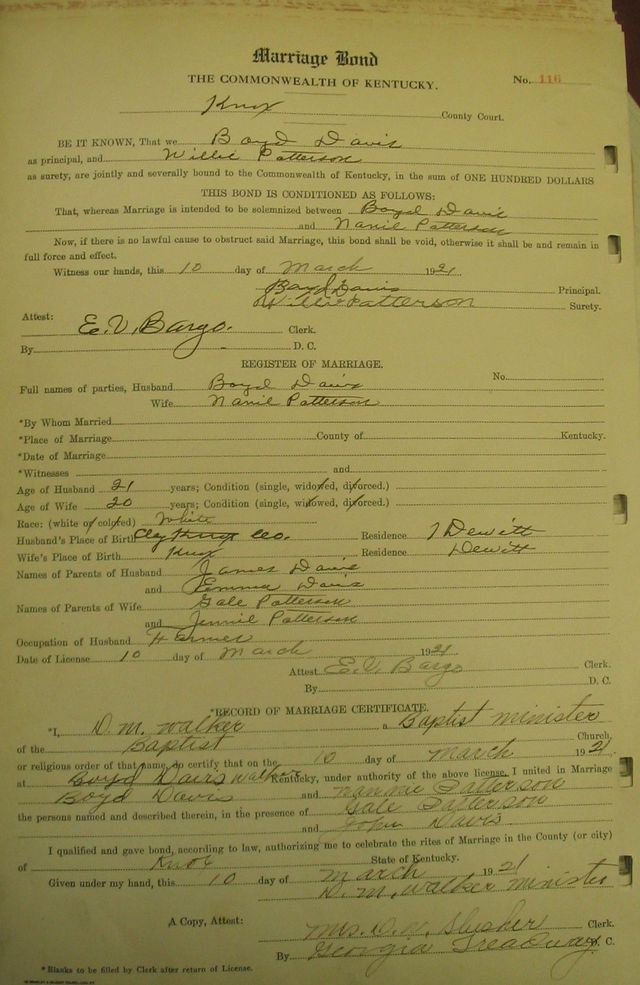 Marriage Bond
THE COMMONWEALTH OF KENTUCKY. No. 116
Knox County Court.
BE IT KNOWN, That we Boyd Davis
as principal, and Willie Patterson
as surety, are jointly and severally bound to the Commonwealth of Kentucky, in the sum of ONE HUNDRED DOLLARS
THIS BOND IS CONDITIONED AS FOLLOWS:
That, whereas Marriage is intended to be solemnized between Boyd Davis
and Nanie Patterson
Now, if there is no lawful cause to obstruct said Marriage, this bond shall be void, otherwise it shall be and remain in
full force and effect.
Witness our hands, this 10 day of March 1921
Boyd Davis Principal.
Willie Patterson Surety.
Attest:
E. V. Bargo. Clerk.
By D. C.
REGISTER OF MARRIAGE.
Full names of parties, Husband Boyd Davis No.
Wife Nanie Patterson
*By Whom Married
*Place of Marriage County of Kentucky.
*Date of Marriage
*Witnesses and
Age of Husband 21 years; Condition (single, widowed, divorced.)
Age of Wife 20 years; Condition (single, widowed, divorced.)
Race: (white or colored) White
Husband's Place of Birth Clay Co. Residence Dewitt
Wife's Place of Birth Knox Residence Dewitt
Names of Parents of Husband James Davis
and Emma Davis
Names of Parents of Wife Gale Patterson
and Jennie Patterson
Occupation of Husband Farmer
Date of License 10 day of March 1921
Attest E. V. Bargo Clerk.
By D. C.
*RECORD OF MARRIAGE CERTIFICATE.
*I, D. M. Walker a Baptist minister
of the Baptist Church,
or religious order of that name, do certify that on the 10 day of March 1921
at Boyd Davis Walker Kentucky, under authority of the above license, I united in Marriage
Boyd Davis and Nannie Patterson
the persons named and described therein, in the presence of Gale Patterson
and John Davis.
I qualified and gave bond, according to law, authorizing me to celebrate the rites of Marriage in the County (or city)
of Knox State of Kentucky.
Given under my hand, this 10 day of March 1921
D. M. Walker minister
A Copy, Attest: Mrs. D. W. Slusher Clerk.
By Georgia Treadway D. C.
*Blanks to be filled by Clerk after return of License.